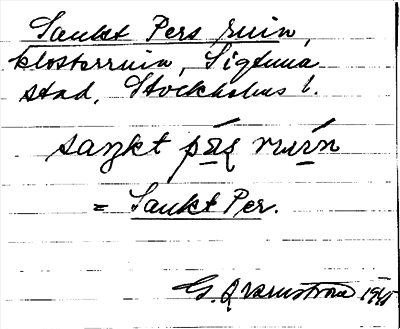 Sankt Pers ruin,
klosterruin, Sigtuna
stad, Stockholms l.
saŋkt pæ̣ʂ ruín
= Sankt Per.
G. Qvarnström 1945